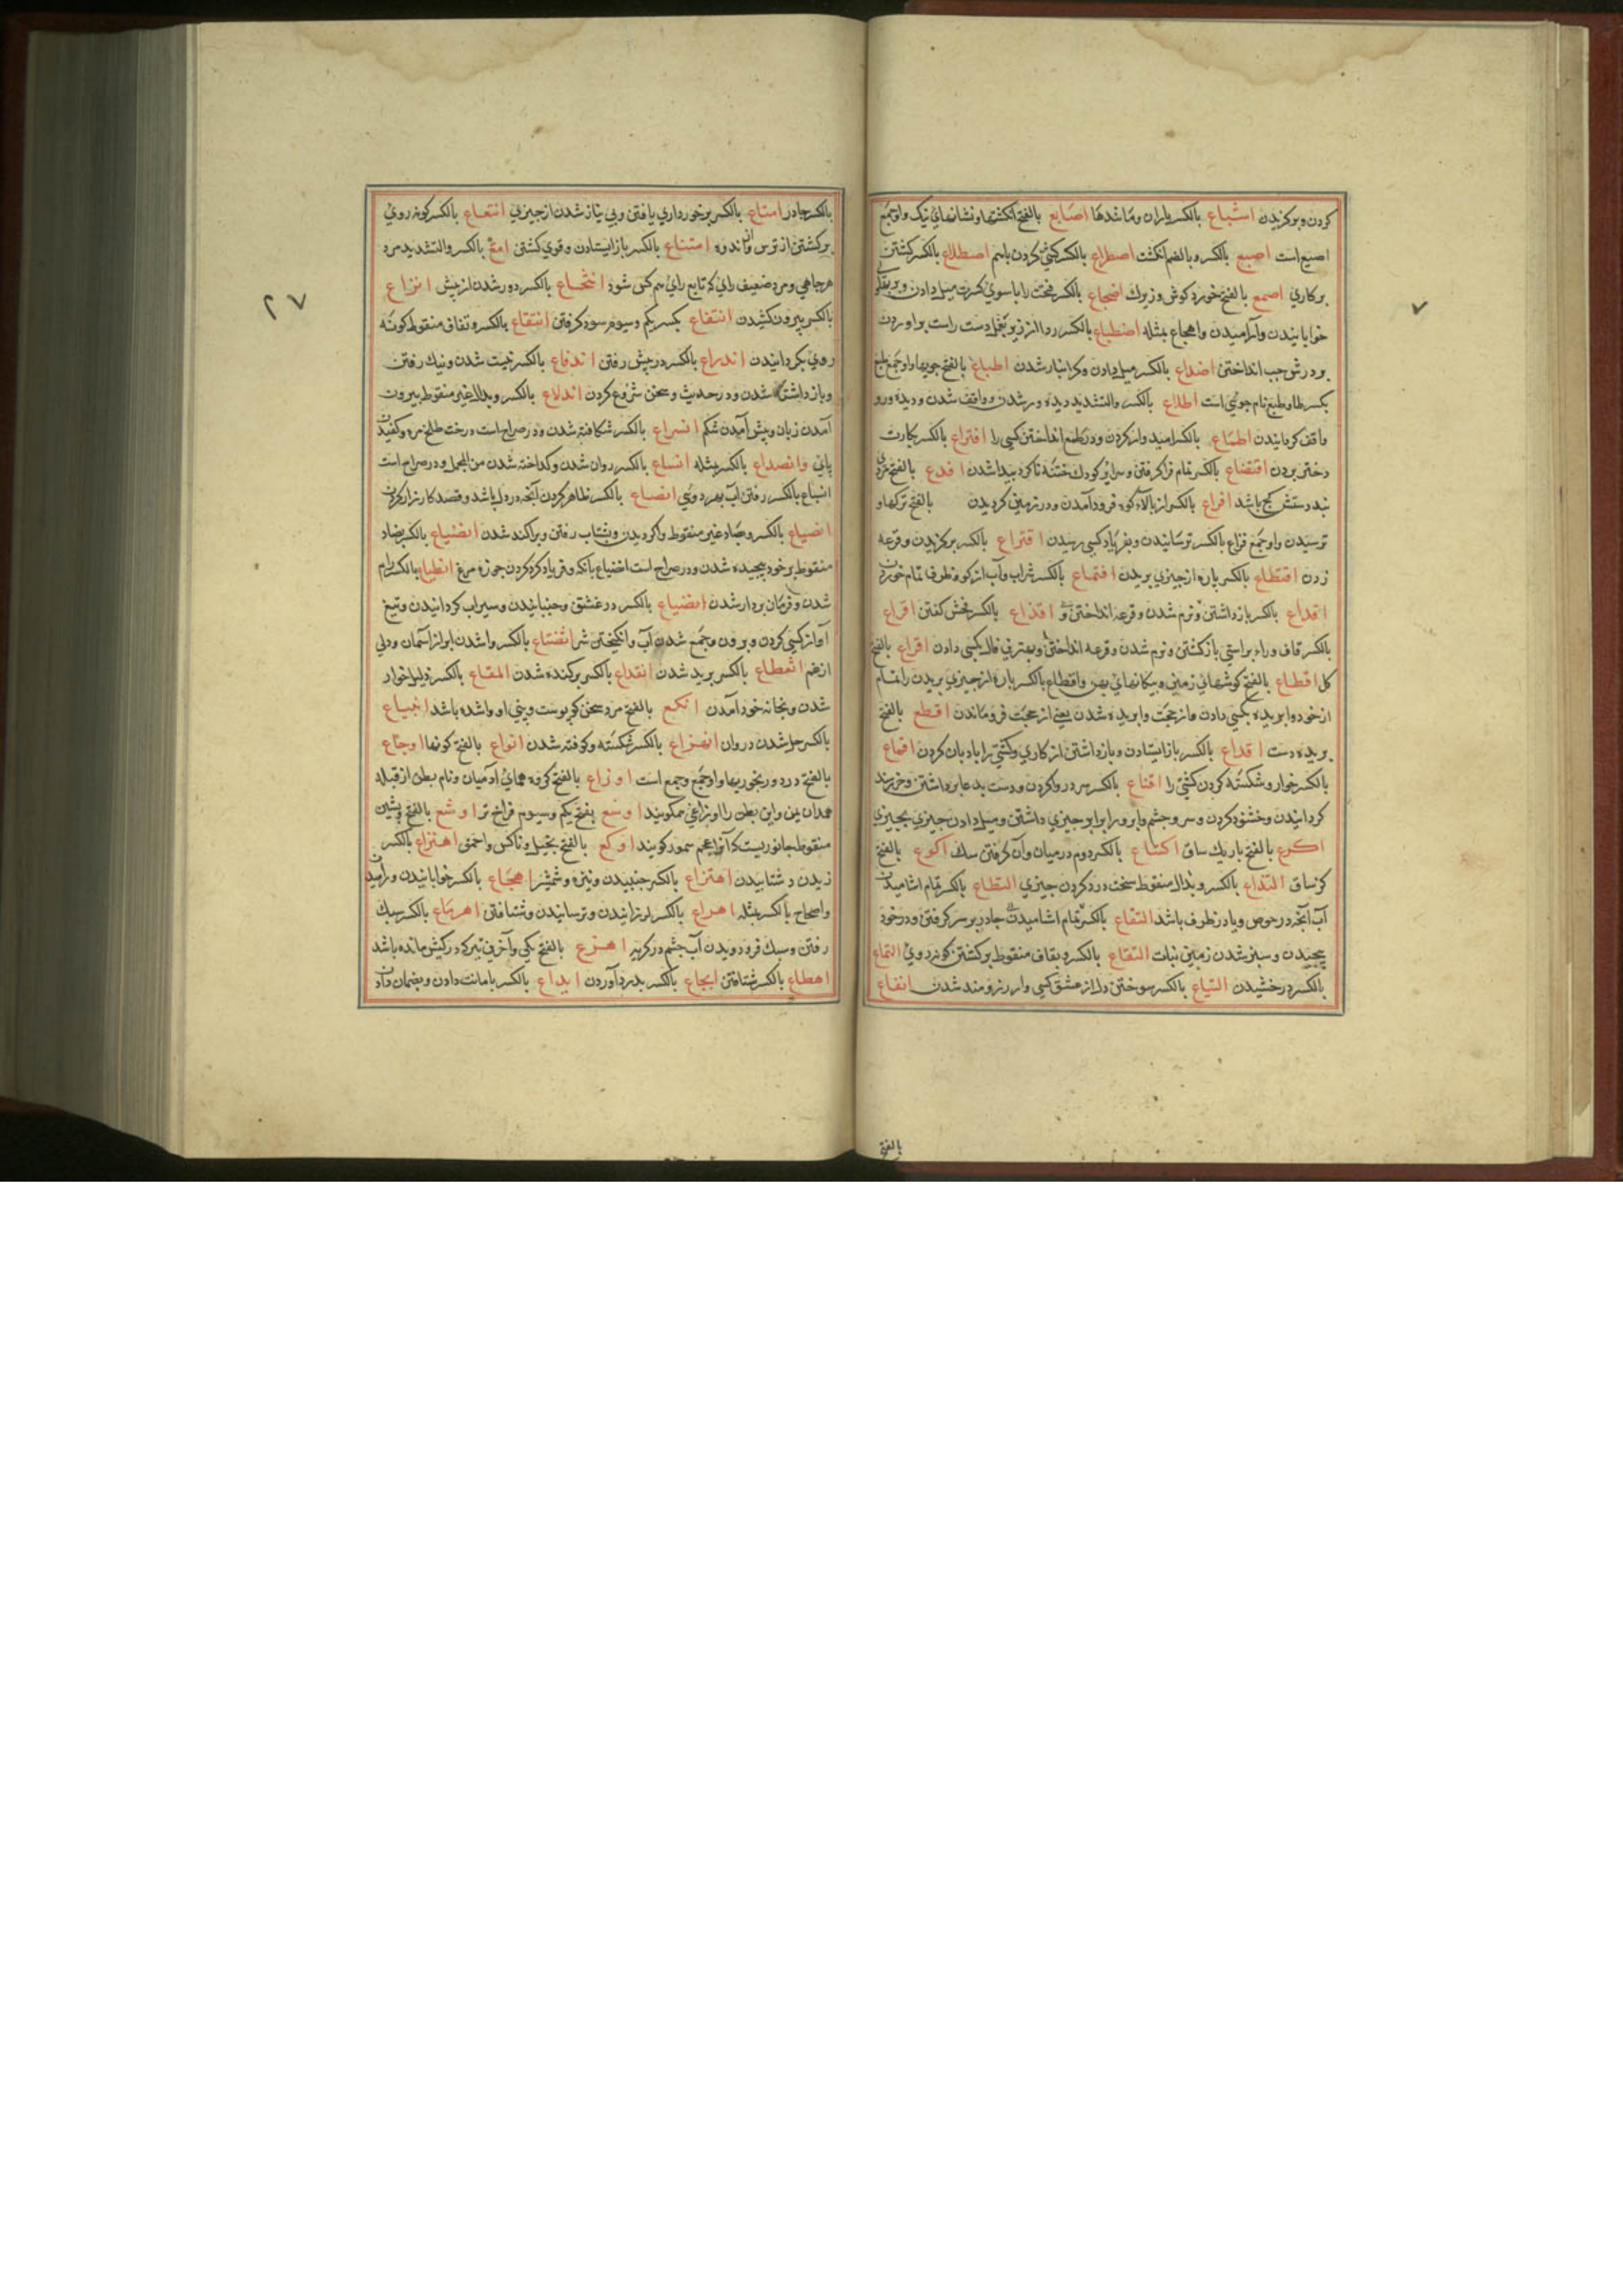 کردن و برکزیدن اشباع بالکسر یاران و مانندها اصابع بالفتح انکشتها و نشانهای نیک واو جمع
اصبع است اصبع بالکسر و بالضم انکشت اصطراع بالکسر کشتی کردن باهم اصطلاع بالکسر کشتن
برکاری اصمع بالفتح خورد کوش و زیرک اضجاع بالکسر
خوابانیدن و آرامیدن واهجاع بمثله اضطباع بالکسر ردا از زیر بغل دست راست براوردن
بر دوش چپ انداختن اضلاع بالکسر میل دادن و کرانبار شدن اطباع بالفتح جویها واو جمع طبع
بکسر طا و طبع نام جوئی است اطلاع بالکسر والتشدید دیده ور شدن و واقف شدن و دیده ورو
واقف کردانیدن اطماع بالکسر امیدوار کردن و در طمع انداختن کسی را افتراع بالکسر بکارت
دختر بردن اقتضاع بالکسر تمام فراکرفتن و کودک ختنه ناکرده پیدا شدن افدع بالفتح
بند دستش کج باشد افراع بالکسر از بالاء کوه فرود آمدن و در زمین کردیدن بالفتح ترکها و
ترسیدن واو جمع فزاع بالکسر ترسانیدن و بفریاد کسی رسیدن اقتراع بالکسر برکزیدن و قرعه
زدن اقتطاع بالکسر پاره از چیزی بریدن اقتماع بالکسر شراب و آب از کوزه و ظرف تمام خوردن
اقداع بالکسر بازداشتن و نرم شدن و قرعه انداختن و اقذاع بالکسر فحش کفتن اقراع
بالکسر قاف و راء براستی بازکشتن و نرم شدن و قرعه انداختن و بهترین فال بکسی دادن اقراع بالفتح
کل اقطاع بالفتح کوشهای زمین و پیکانهای پهن واقطاع بالکسر پاره از چیزی بریدن را تمام
از خود وا بریده بکسی دادن و از حجت وا بریده شدن یعنی از حجت فروماندن اقطع بالفتح
بریده دست اقلاع بالکسر باز ایستادن و بازداشتن از کاری و کشتی را بادبان کردن اقماع
بالکسر خوار و شکسته کردن کشتی را اقناع بالکسر سر در روا کردن و دست بدعا برداشتن و خرسند
کردانیدن و خشنود کردن و سر و چشم و ابرو را برابر چیزی داشتن و میل دادن چیزی بچیزی
اکرع بالفتح باریک ساق اکتناع بالکسر دوم در میان وآن کرفتن سک اکوع بالفتح
کژ ساق التذاع بالکسر و بذال منقوط سخت درد کردن چیزی التطاع بالکسر تمام اشامیدن
آب آنچه در حوض و یا در ظرف باشد التفاع بالکسر تمام اشامیدن چادر بر سر کرفتن و در خود
پیچیدن و سبز شدن زمین نبات التقاع بالکسر و بقاف منقوط برکشتن کونه روی التماع
بالکسر درخشیدن التیاع بالکسر سوختن دل از عشق کسی و ارزومند شدن انفاع
بالفتح
۲۷
بالکسر چادر امتاع بالکسر برخورداری یافتن و بی نیاز شدن از چیزی انتفاع بالکسر کونه روی
برکشتن از ترس و اندوه امتناع بالکسر باز ایستادن و قوی کشتن امع بالکسر والتشدید مرد
هرجاهی و مرد ضعیف رای که تابع رای هر کس شود انتجاع بالکسر دور شدن از پیش انزاع
بالکسر بیرون کشیدن انتفاع بکسر یکم و سیوم سود کرفتن انتقاع بالکسر و تفاف منقوط کونه
روی بکردانیدن اندراع بالکسر در پیش رفتن اندفاع بالکسر نیست شدن و نیک رفتن
و بازداشته شدن و در حدیث و سخن شروع کردن اندلاع بالکسر و بدال غیر منقوط بیرون
آمدن زبان و پیش آمدن شکم انسراع بالکسر شکافته شدن و در صراح است درخت طلح مره و کفیدن
پای وانصداع بالکسر بمثله انسیاع بالکسر روان شدن و کداخته شدن من المجمل و در صراح است
انسیاع بالکسر رفتن آب بهر دوی انصاع بالکسر ظاهر کردن آنچه در دل باشد و قصد کارزار کردن
انصیاع بالکسر و صاد غیر منقوط واکردیدن و بشتاب رفتن و پراکنده شدن انضیاع بالکسر بضاد
منقوط بر خود پیچیده شدن و در صراح است انضیاع بانکه و فریاد کرد کردن جوزه مرغ انطیاع بالکسر رام
شدن و فرمان بردار شدن انضیاع بالکسر در عشق و جنبانیدن و سیراب کردانیدن و تیغ
آواز کسی کردن و برون و جمع شدن آب و انکیختن شر انقشاع بالکسر واشدن ابر از آسمان و دلی
از غم انقطاع بالکسر برید شدن انقلاع بالکسر برکنده شدن القاع بالکسر ذلیل و خوار
شدن و بخانه خود آمدن انکع بالفتح مرد سخن که پوست و بینی او واشده باشد انبیاع
بالکسر حل شدن در روان انهزاع بالکسر شکسته و کوفته شدن انواع بالفتح کونها اوجاع
بالفتح درد و رنجوریها واو جمع وجع است اوزاع بالفتح کروه همای ادمیان و نام بطن از قبیله
همدان یمن و این بطن را اوزاعی میکویند اوسع بفتح یکم و سیوم فراخ تر اوشع بالفتح و شین
منقوط جانوریست که آنرا عجم سمور کویند اوکع بالفتح بخیل و ناکس و احمق اهتراع بالکسر
زیدن و شتابیدن اهتزاع بالکسر جنبیدن و نیزه و شمشیر اهجاع بالکسر خوابانیدن و آرامیدن
واصحاح بالکسر بمثله اهراع بالکسر لرزانیدن و ترسانیدن و شتافتن اهرماع بالکسر سبک
رفتن و سبک فرود ویدن آب چشم در کریه اهزع بالفتح یکی و آخرین تیر که در کیش مانده باشد
اهطاع بالکسر شتافتن ایجاع بالکسر بدرد آوردن ایداع بالکسر بامانت دادن و بضمان دادن